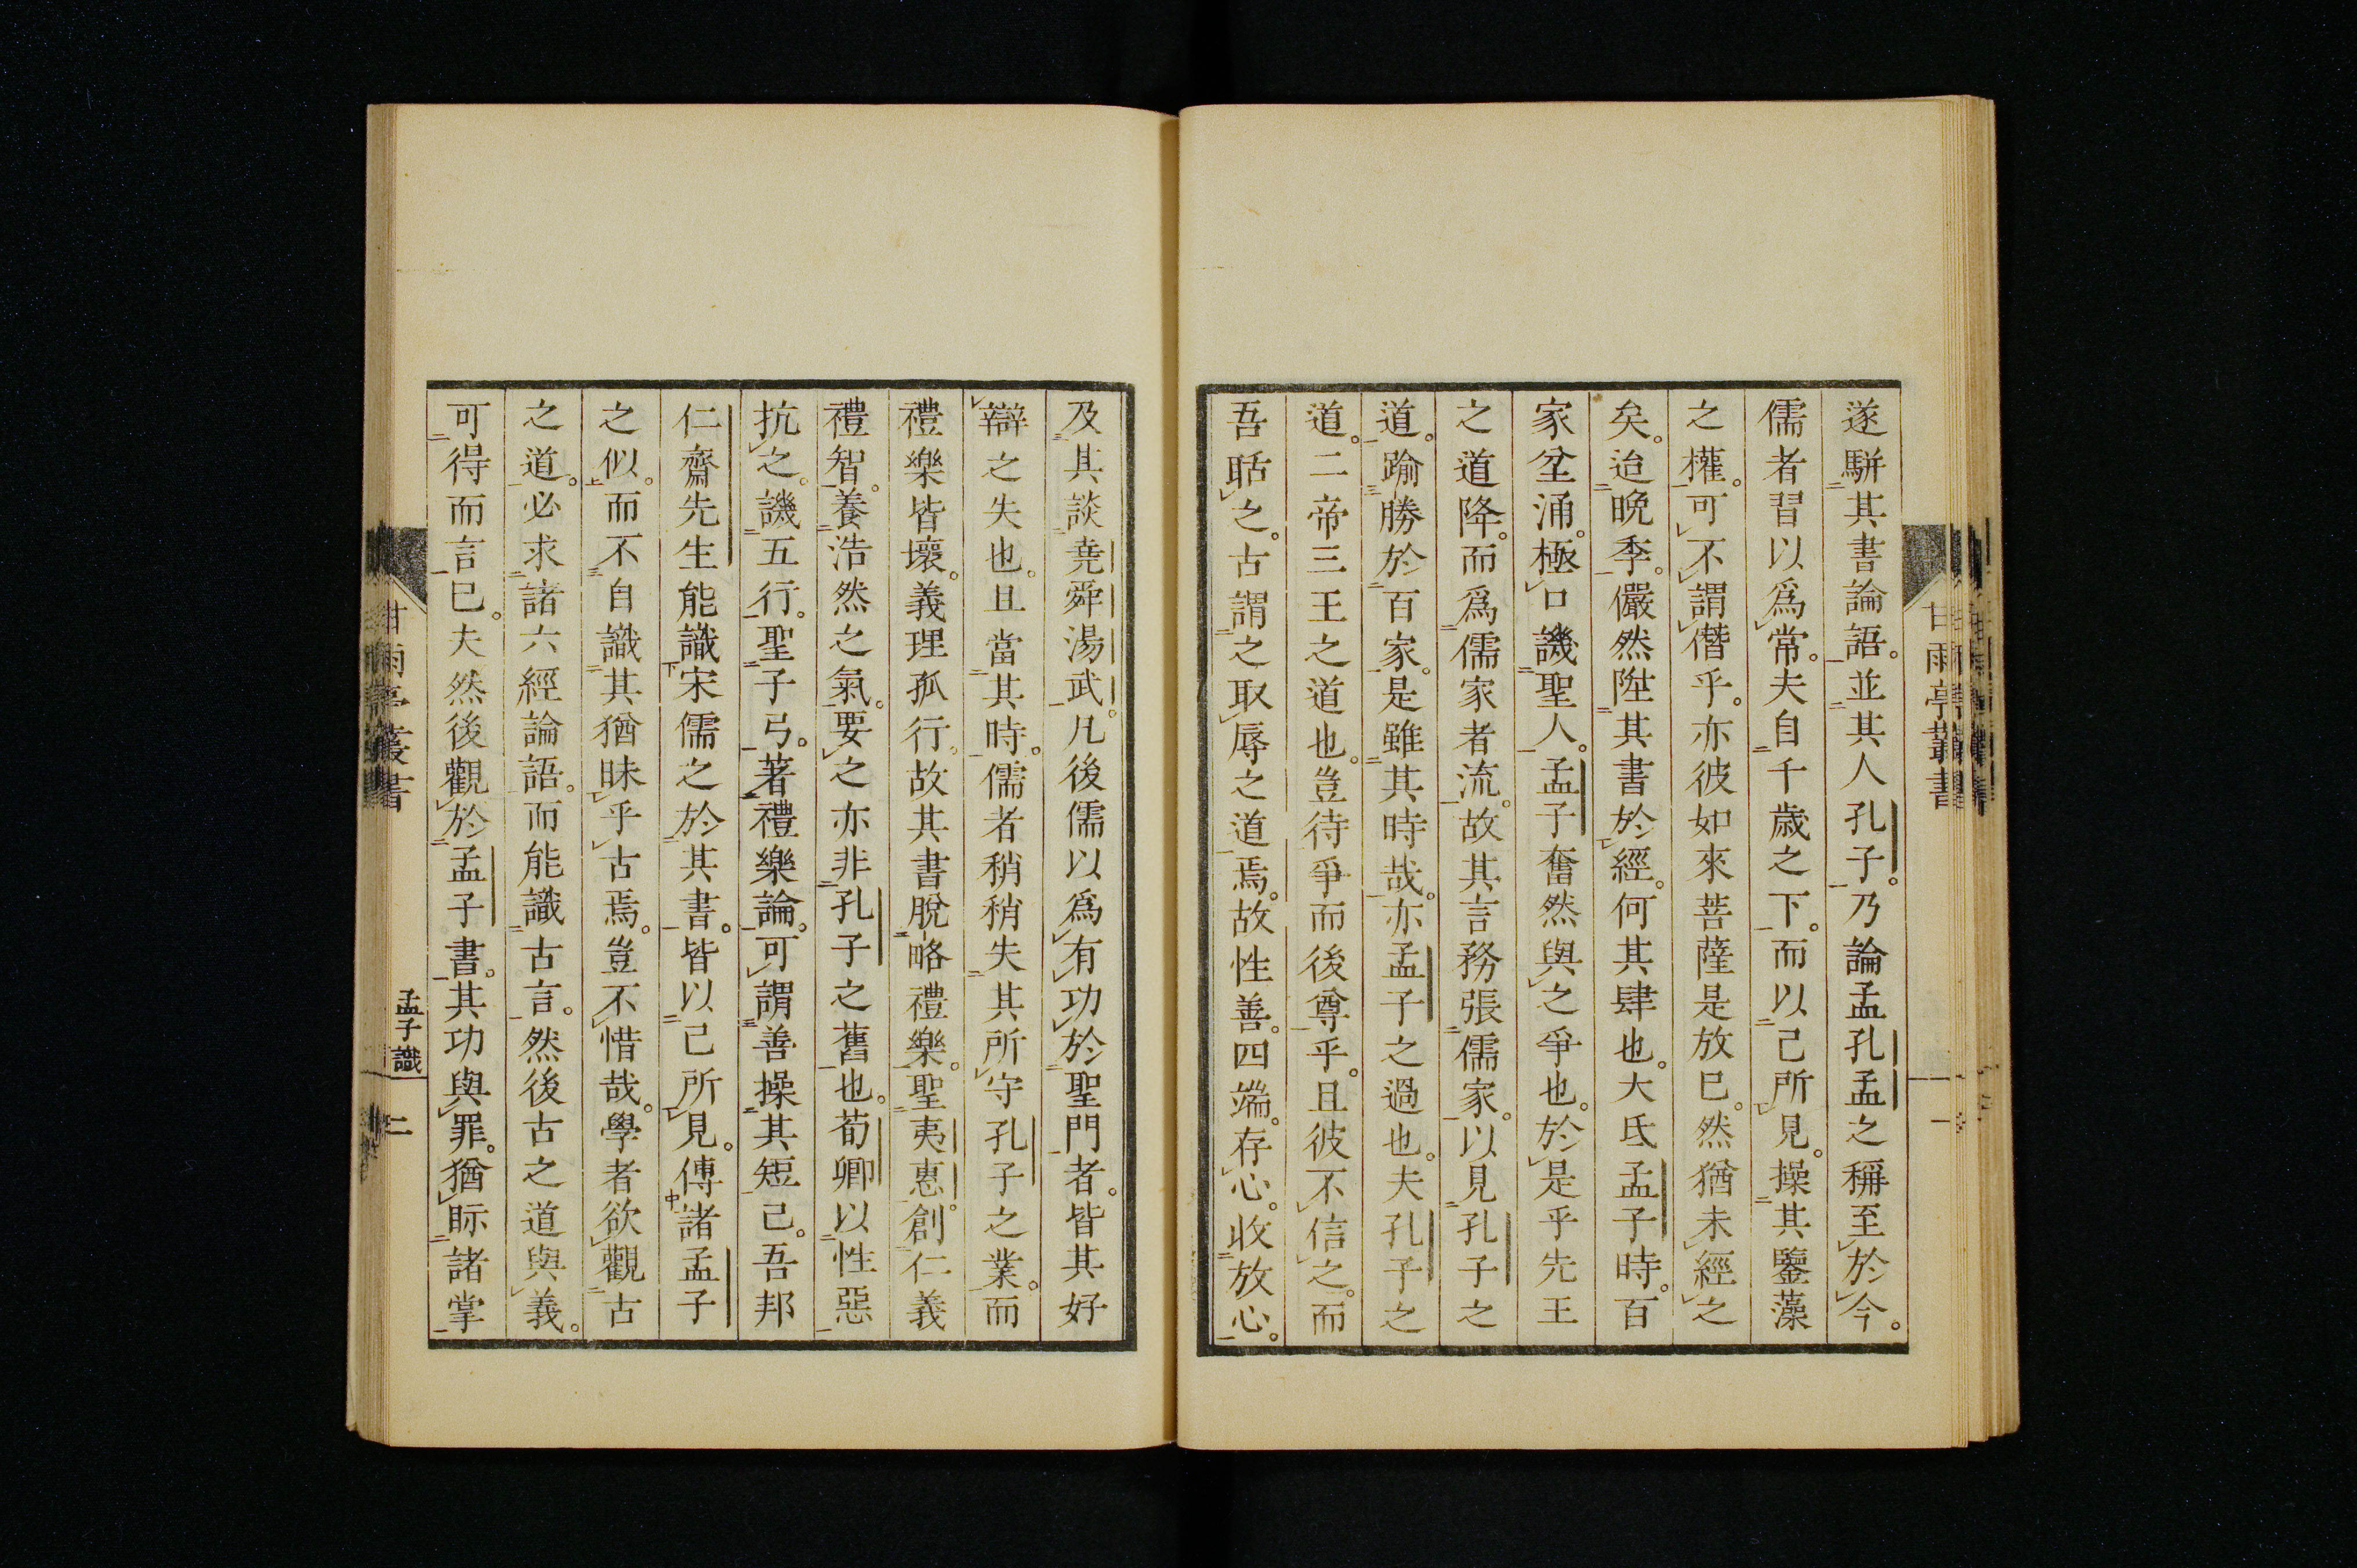 遂駢其書論語。並其人孔子。乃論孟孔孟之稱至於今。
儒者習以爲常。夫自千歲之下。而以己所見。操其鑒藻
之權。可不謂僭乎。亦彼如來菩薩是放已。然猶未經之
矣。迨晚季。儼然陞其書於經。何其肆也。大氐孟子時。百
家坌涌。極口譏聖人。孟子奮然與之爭也。於是乎先王
之道降。而爲儒家者流。故其言務張儒家。以見孔子之
道。踰勝於百家。是雖其時哉。亦孟子之過也。夫孔子之
道。二帝三王之道也。豈待爭而後尊乎。且彼不信之。而
吾聒之。古謂之取辱之道焉。故性善。四端。存心。收放心。
及其談堯舜湯武。凡後儒以爲有功於聖門者。皆其好
辯之失也。且當其時。儒者稍稍失其所守孔子之業。而
禮樂皆壞。義理孤行。故其書脫略禮樂。聖夷惠。創仁義
禮智。養浩然之氣。要之亦非孔子之舊也。荀卿以性惡
抗之。譏五行。聖子弓。著禮樂論。可謂善操其短已。吾邦
仁齋先生能識宋儒之於其書。皆以己所見。傅諸孟子
之似。而不自識其猶昧乎古焉。豈不惜哉。學者欲觀古
之道。必求諸六經論語。而能識古言。然後古之道與義。
可得而言已。夫然後觀於孟子書。其功與罪。猶眎諸掌
甘雨亭叢書
甘雨亭叢書
孟子識
二